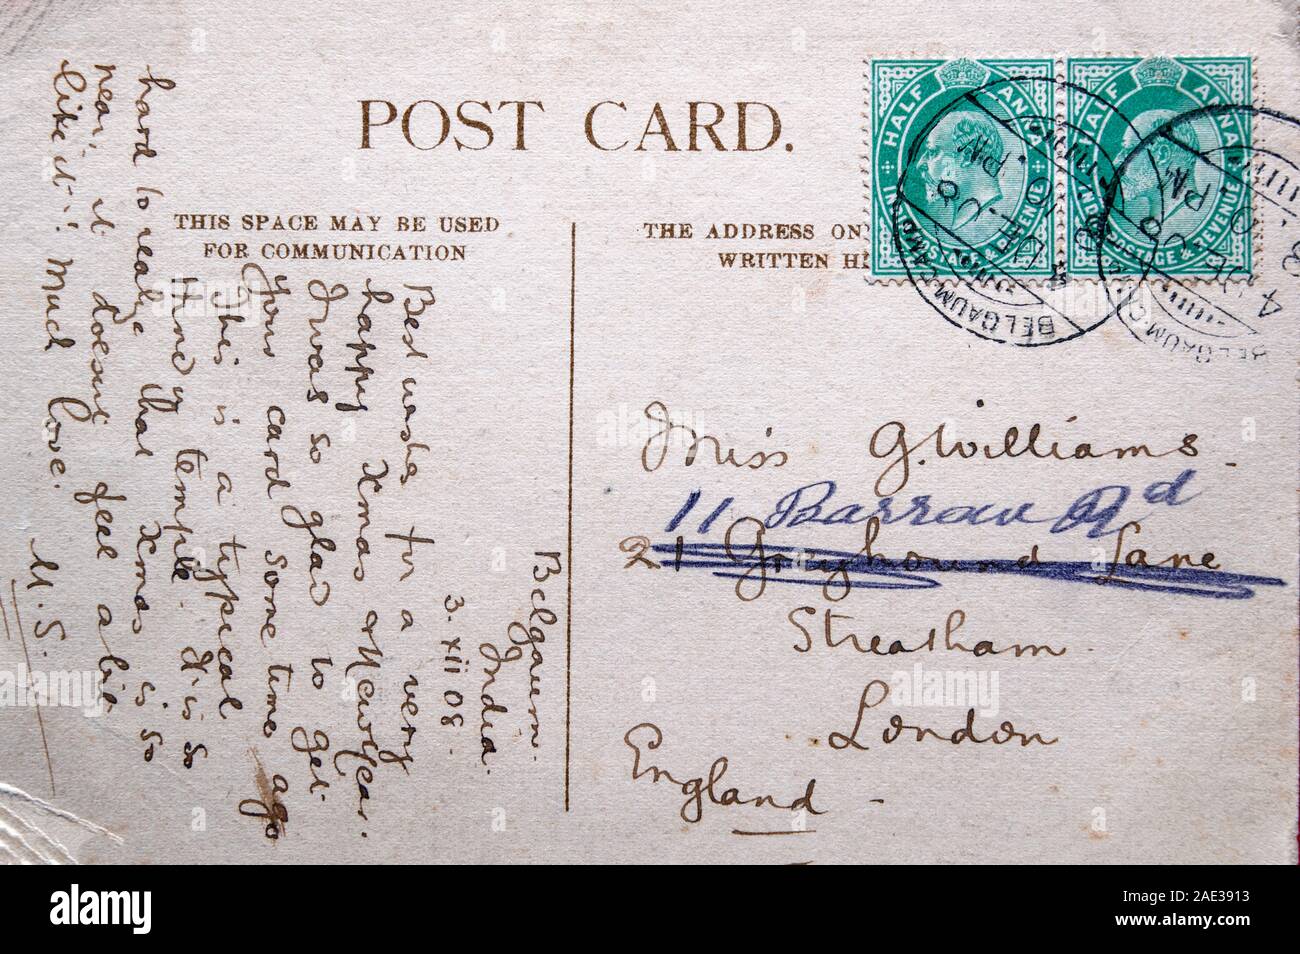 POST CARD.
THIS SPACE MAY BE USED
FOR COMMUNICATION
THE ADDRESS ON
WRITTEN HE
HALF ANNA
INDIA POSTAGE & REVENUE
HALF ANNA
INDIA POSTAGE & REVENUE
BELGAUM CAMP
4 DE 08
PM
BELGAUM CAMP
4 DE 08
PM
Belgaum.
India.
3. xii 08.
Best wishes for a very
happy Xmas & New Year.
I was so glad to get
your card some time ago
This is a typical
Hindu temple. It is so
hard to realize that Xmas is so
near, it doesn't feel a bit
like it! Much love.
M.S.
Miss G. Williams.
11 Barrow Rd
21 Greyhound Lane
Streatham
London
England
alamy
Image ID: 2AE3913
www.alamy.com